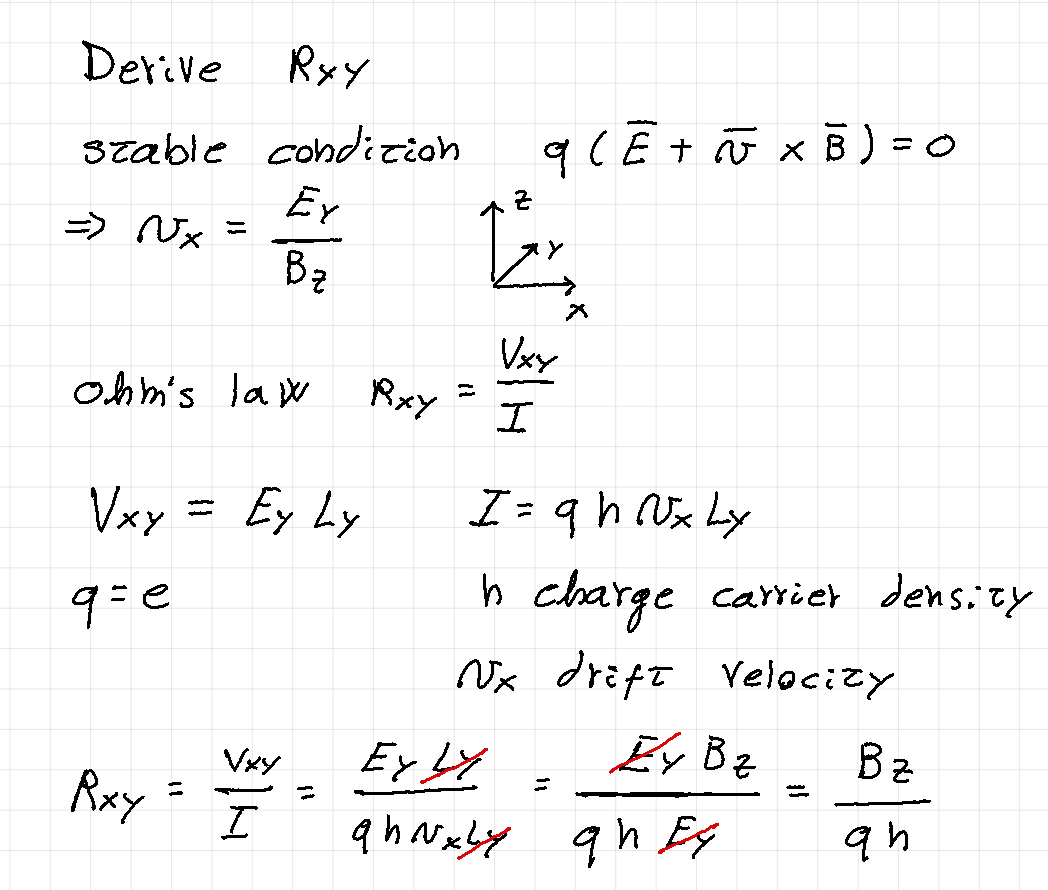 Derive Rxy
stable condition q ( E̅ + v̅ × B̅ ) = 0
⇒ vx = Ey / Bz
z
y
x
ohm's law Rxy = Vxy / I
Vxy = Ey Ly I = q n vx Ly
q = e n charge carrier density
vx drift velocity
Rxy = Vxy / I = Ey Ly / q n vx Ly = Ey Bz / q n Ey = Bz / q n